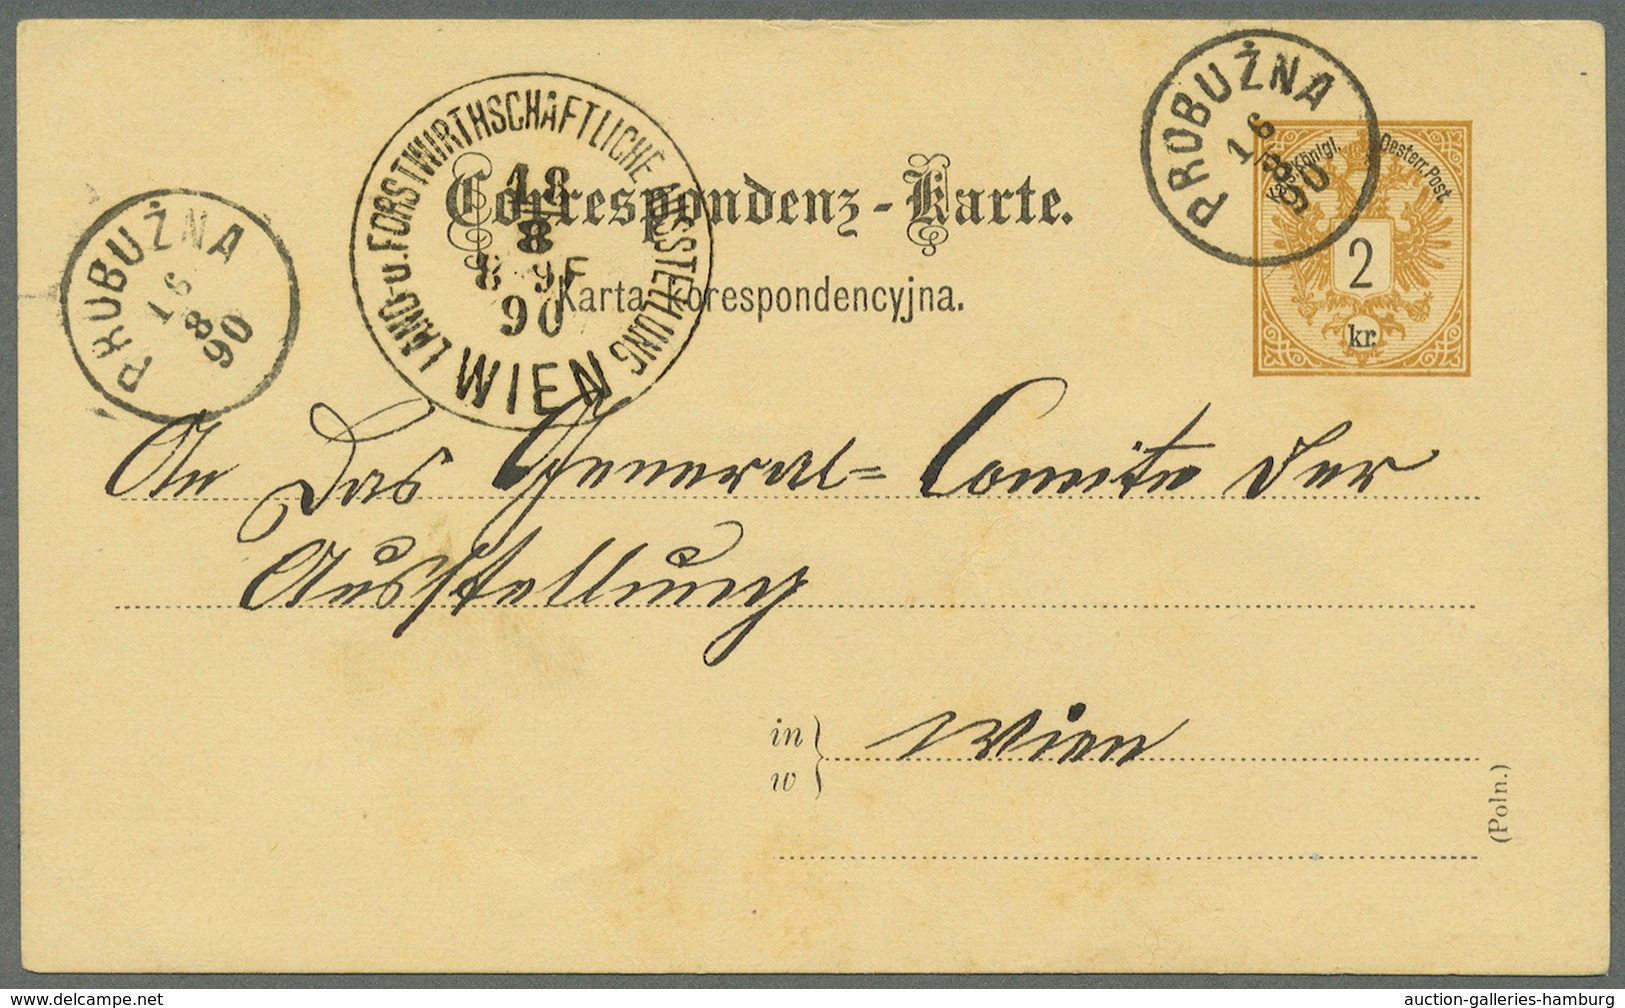 PROBUŻNA
16
8
90
Kais. Königl. Oesterr. Post.
2
kr.
LAND- u. FORSTWIRTHSCHAFTLICHE AUSSTELLUNG
18
8
8-9F
90
WIEN
Correspondenz-Karte.
Karta korespondencyjna.
PROBUŻNA
16
8
90
An das General-Comite der
Ausstellung
in
w
Wien
(Poln.)
www.delcampe.net
auction-galleries-hamburg